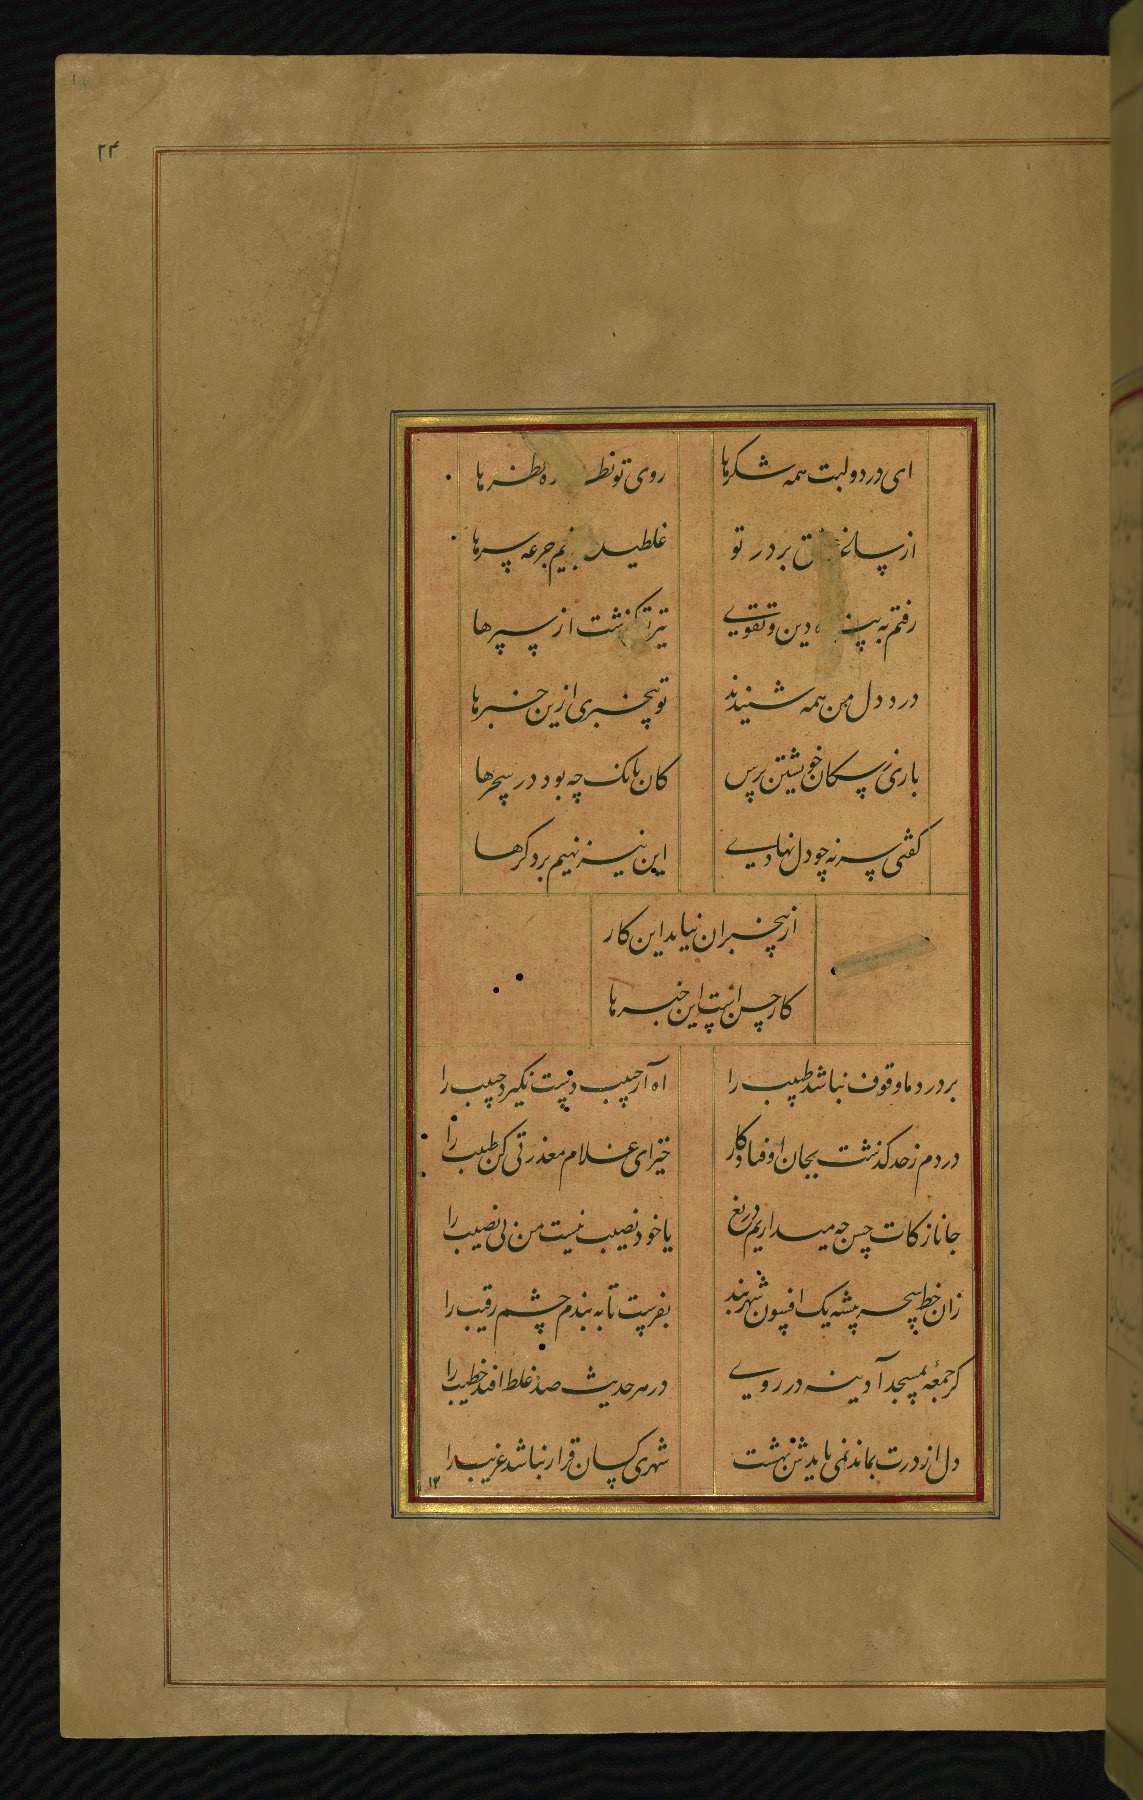 ۲۴
ای در دو لبت همه شکرها روی تو نظ ره نظرها
از پسا بر در تو غلطید نیم جرعه سرها
رفتم به دین و تقوی تیر تو گذشت از سپرها
درد دل من همه شنیدند تو بیخبری ازین خبرها
باری ز سکان خویشتن پرس کان بانک چه بود در سحرها
کفتی سر نه چو دل نهادی این نیز نهیم بر دکرها
از بیخبران نیاید این کار
کار حسن است این خبرها
بر درد ما وقوف نباشد طبیب را اه ار حبیب دست نکیرد حبیب را
دردم ز حد کذشت بجان اوفتاد کار خیز ای غلام معذرتی کن طبیب را
جانا زکات حسن چه میداریم دریغ یا خود نصیب نیست من بی نصیب را
زان خط سحر پیشه یک افسون شهربند بفرست تا به بندم چشم رقیب را
کر جمعه بمسجد آدینه در روی در هر حدیث صد غلط افتد خطیب را
دل از درت بماند نمی باید شن بهشت شهری کسان قرار نباشد غریب را
۱۳